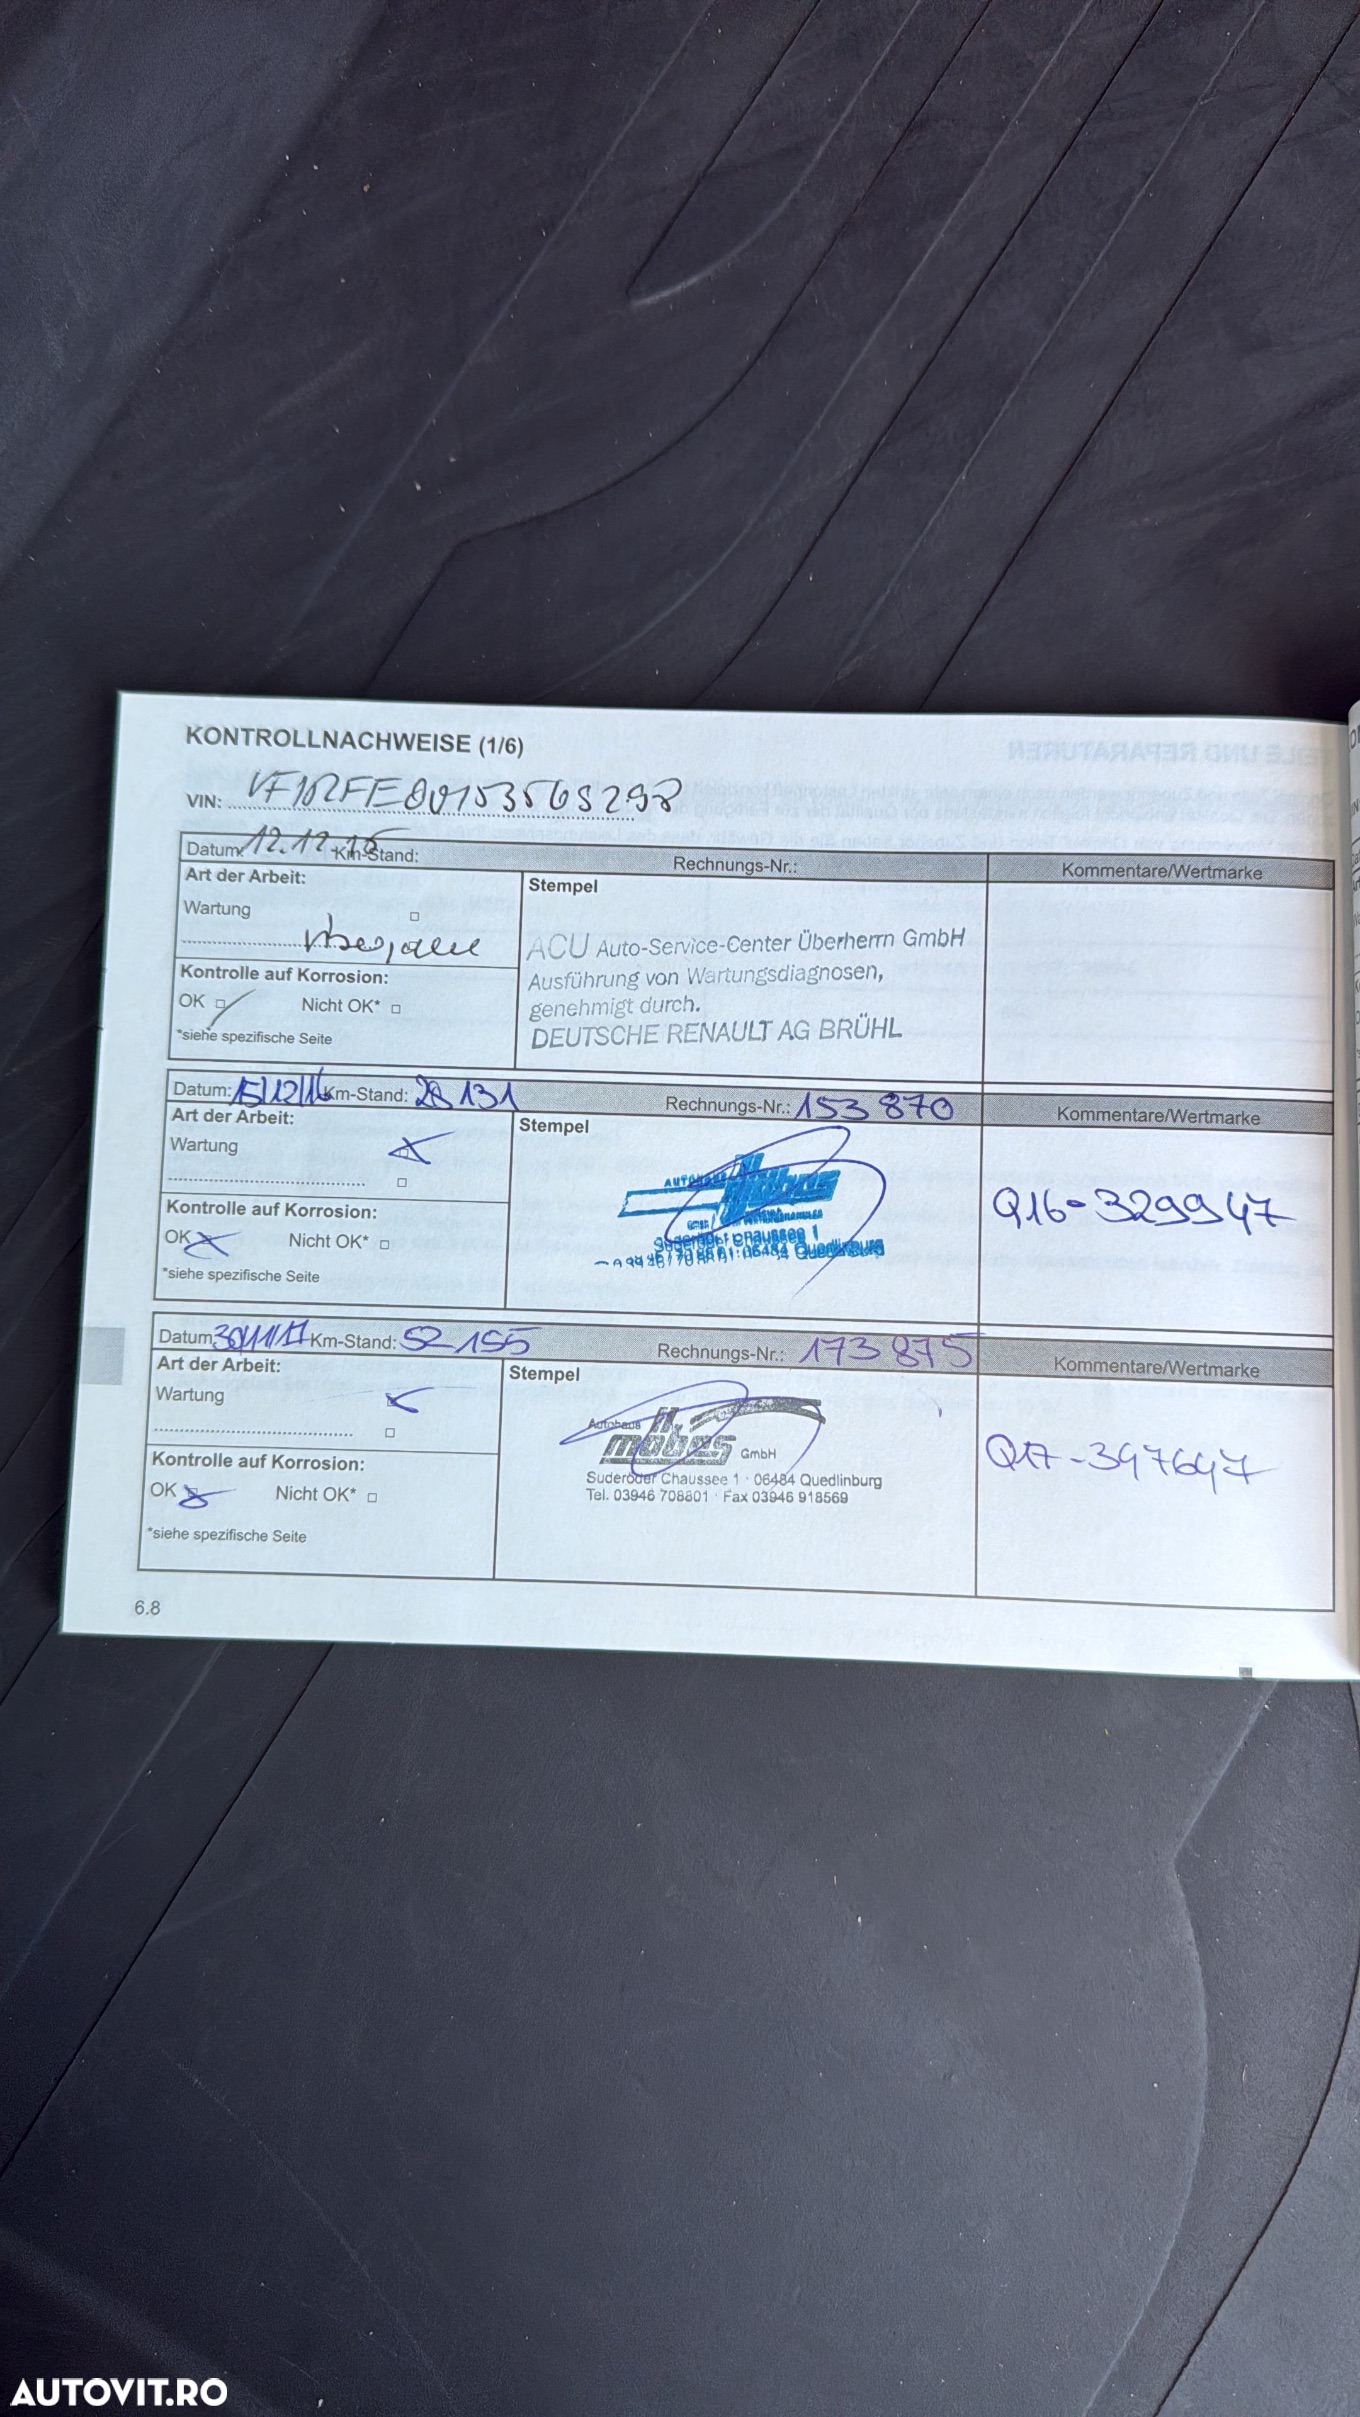 KONTROLLNACHWEISE (1/6)
VIN:
Datum: 12.12.15 Km-Stand: Rechnungs-Nr.: Kommentare/Wertmarke
Art der Arbeit:
Stempel
Wartung
ACU Auto-Service-Center Überherrn GmbH
Ausführung von Wartungsdiagnosen,
genehmigt durch.
DEUTSCHE RENAULT AG BRÜHL
Kontrolle auf Korrosion:
OK Nicht OK*
*siehe spezifische Seite
Datum: 15/12/16 Km-Stand: 28 131 Rechnungs-Nr.: 153 870 Kommentare/Wertmarke
Art der Arbeit:
Stempel
Wartung
Suderöder Chaussee 1
06484 Quedlinburg
Q16-329947
Kontrolle auf Korrosion:
OK Nicht OK*
*siehe spezifische Seite
Datum: 30/11/17 Km-Stand: 52 155 Rechnungs-Nr.: 173 875 Kommentare/Wertmarke
Art der Arbeit:
Stempel
Wartung
Autohaus
möbes GmbH
Suderöder Chaussee 1 · 06484 Quedlinburg
Tel. 03946 708801 · Fax 03946 918569
Q17-397647
Kontrolle auf Korrosion:
OK Nicht OK*
*siehe spezifische Seite
6.8
AUTOVIT.RO